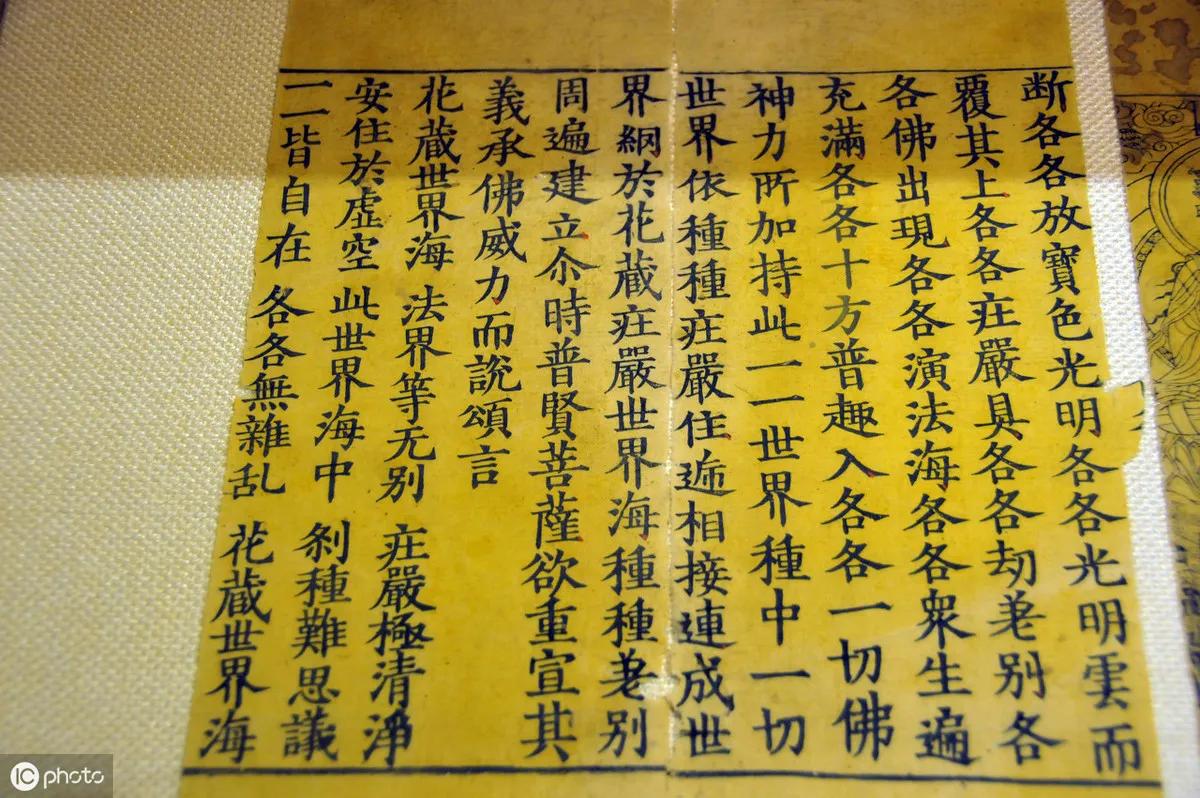 断各各放寶色光明各各光明雲而
覆其上各各庄嚴具各各劫差别各
各佛出現各各演法海各各衆生遍
充滿各各十方普趣入各各一切佛
神力所加持此一一世界種中一切
世界依種種庄嚴住逓相接連成世
界網於花藏庄嚴世界海種種差别
周遍建立尒時普賢菩薩欲重宣其
義承佛威力而說頌言
花藏世界海 法界等无别 庄嚴極清淨
安住於虛空 此世界海中 剎種難思議
一一皆自在 各各無雜乱 花藏世界海
IC photo